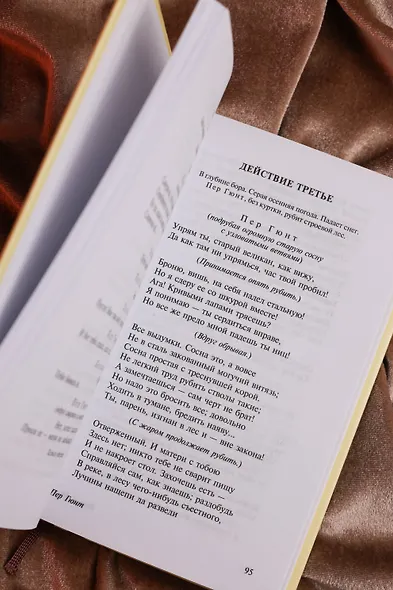 ДЕЙСТВИЕ ТРЕТЬЕ
В глубине бора. Серая осенняя погода. Падает снег.
Пер Гюнт, без куртки, рубит строевой лес.
Пер Гюнт
(подрубая огромную старую сосну
с узловатыми ветвями)
Упрям ты, старый великан, как вижу,
Да как там ни упрямься, час твой пробил!
(Принимается опять рубить.)
Броню, вишь, на себя надел стальную!
Но я сдеру ее со шкурой вместе!
Ага! Кривыми лапами трясешь?
Я понимаю — ты сердиться вправе,
Но все же предо мной падешь ты ниц!
(Вдруг обрывая.)
Все выдумки. Сосна это, а вовсе
Не в сталь закованный могучий витязь;
Сосна простая с треснувшей корой.
Не легкий труд рубить стволы такие;
А замечтаешься — сам черт не брат!
Но надо это бросить все; довольно
Ходить в тумане, бредить наяву...
Ты, парень, изгнан в лес и — вне закона!
(С жаром продолжает рубить.)
Отверженный. И матери с тобою
Здесь нет; никто тебе не сварит пищу
И не накроет стол. Захочешь есть —
Справляйся сам, как знаешь; раздобудь
В реке, в лесу чего-нибудь съестного,
Лучины нащепи да разведи
95
Пер Гюнт